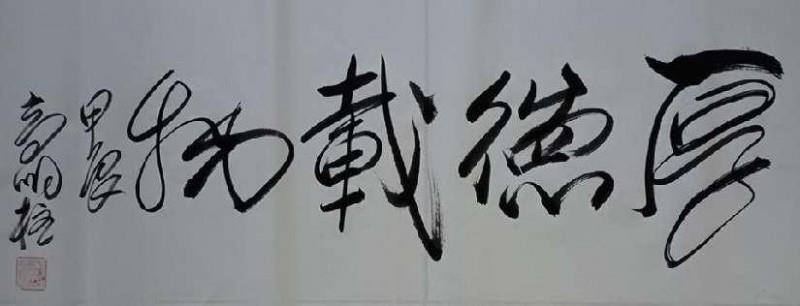 厚德載物
甲辰
高明柱